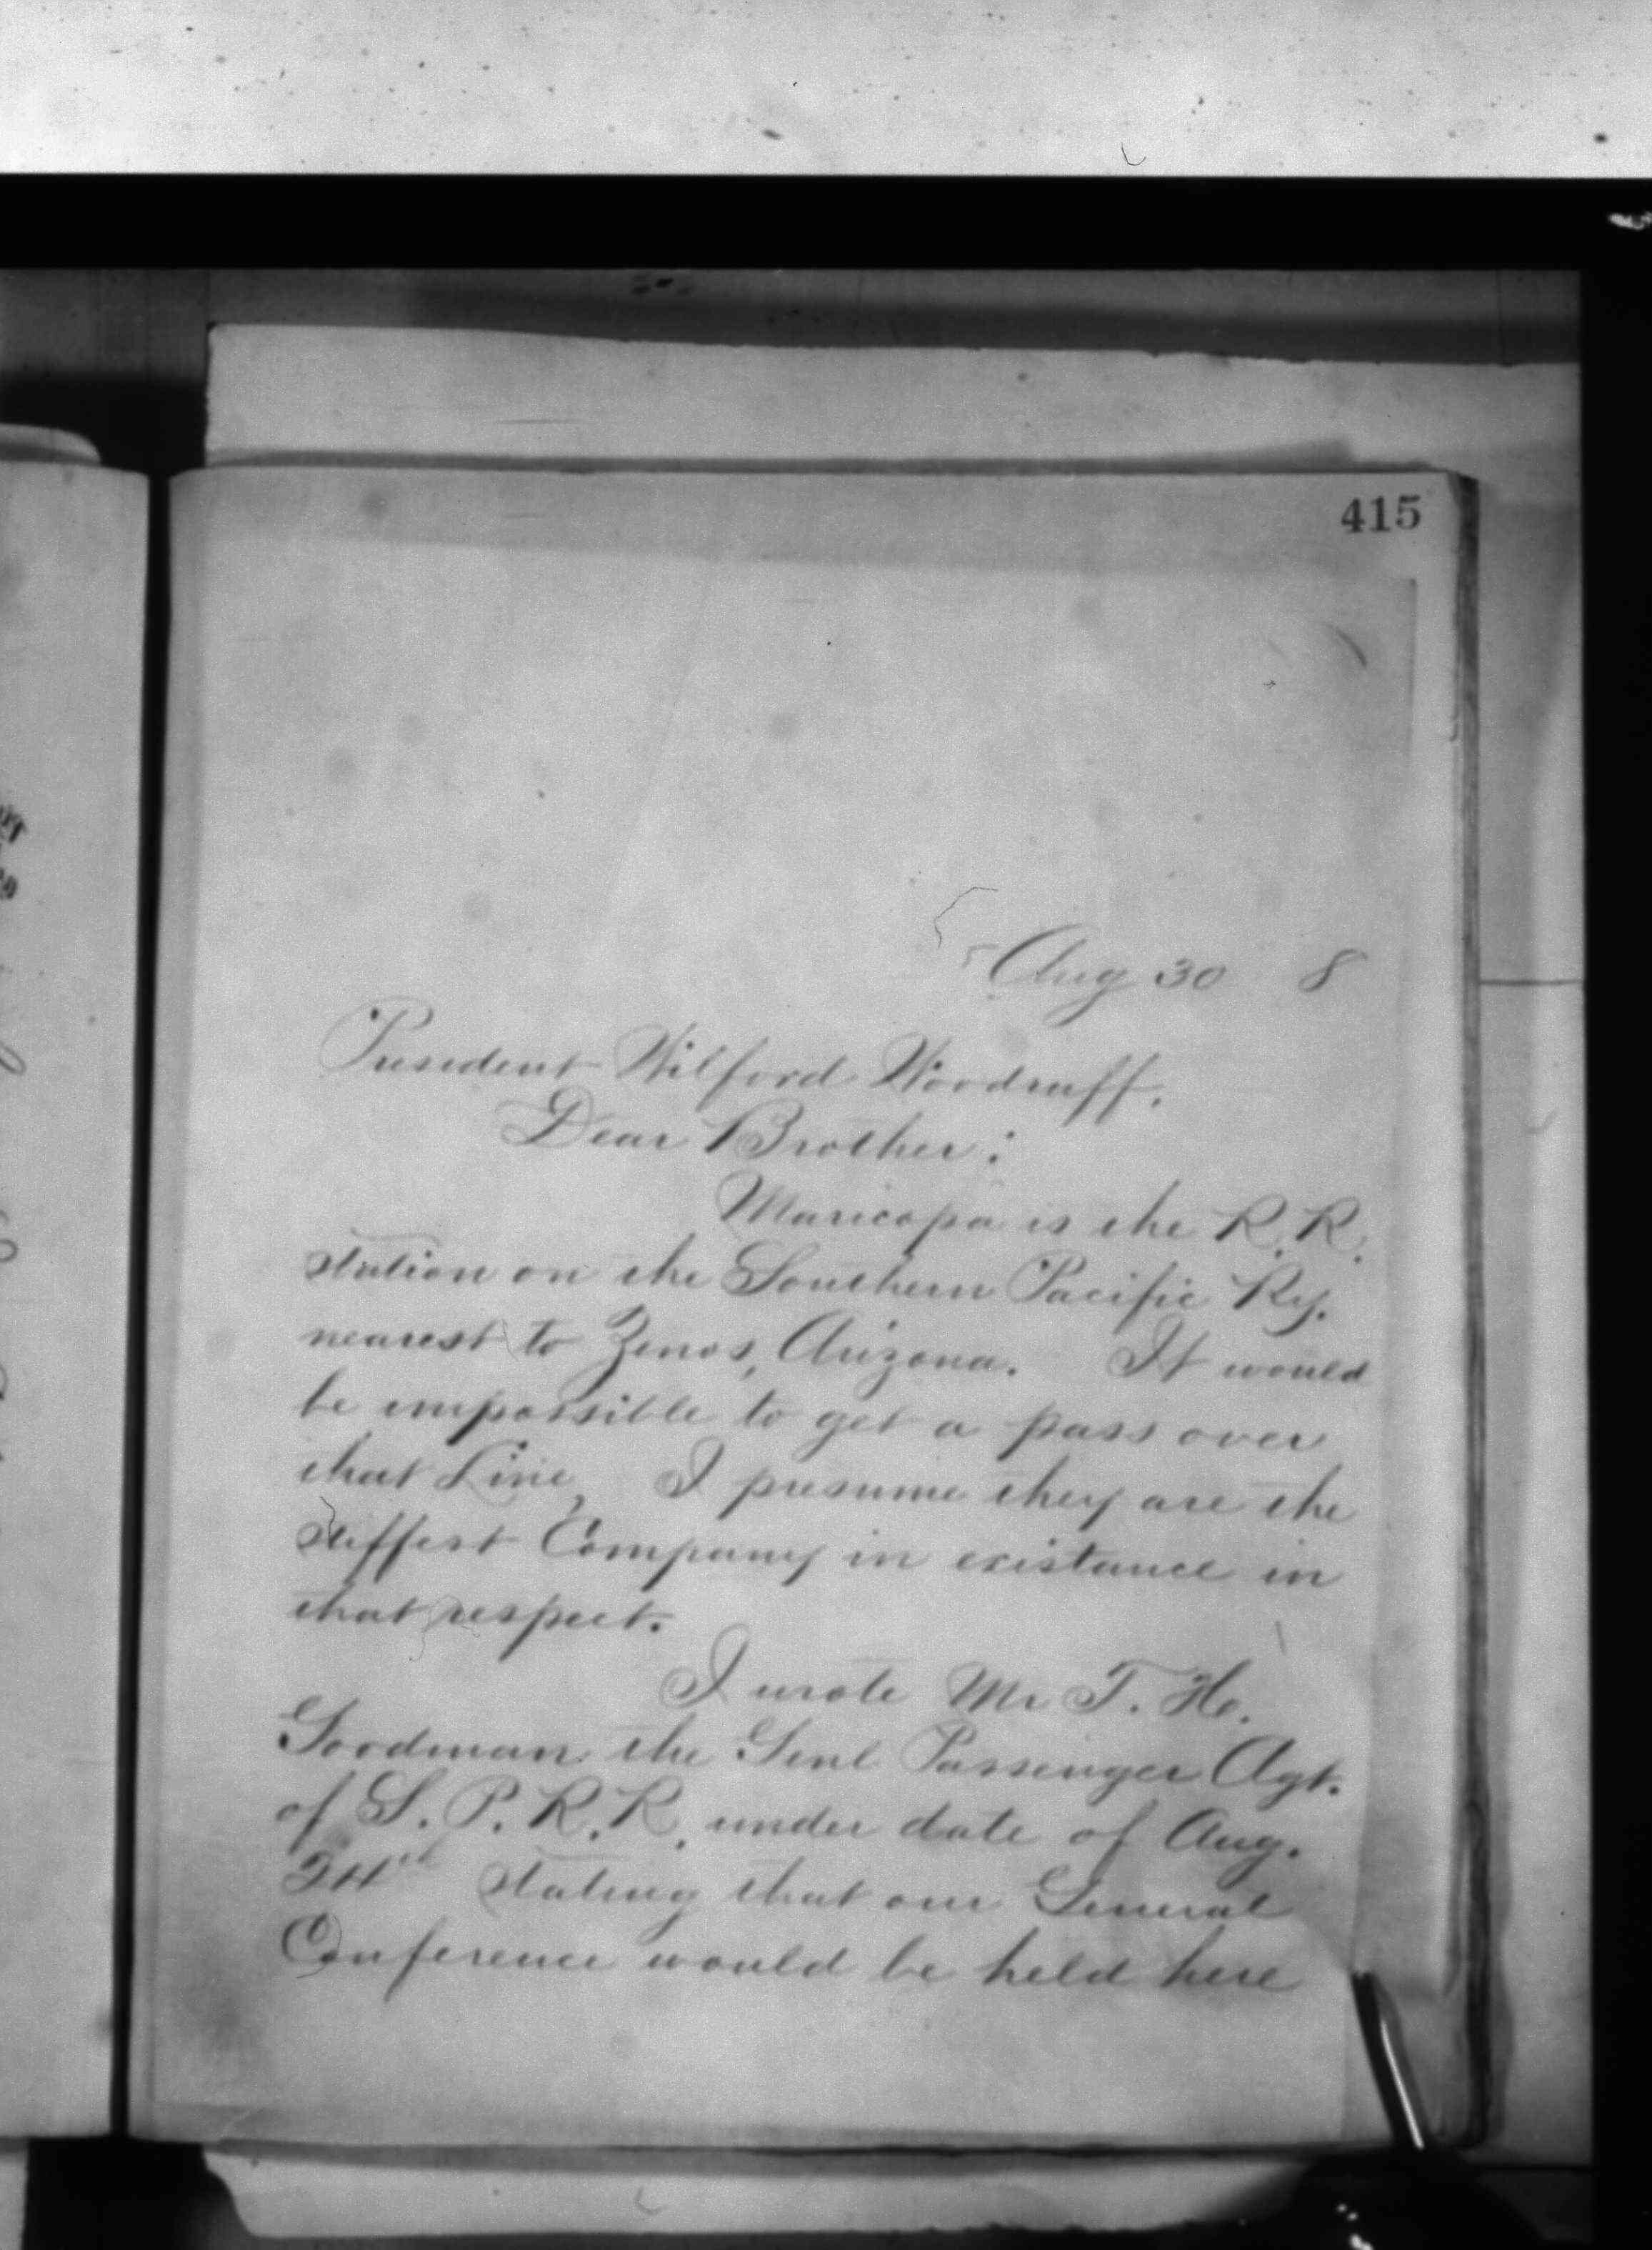 415
Aug 30 8
President Wilford Woodruff.
Dear Brother:
Maricopa is the R. R.
station on the Southern Pacific Ry.
nearest to Zenos, Arizona. It would
be impossible to get a pass over
that Line, I presume they are the
stiffest Company in existance in
that respect.
I wrote Mr T. H.
Goodman the Genl Passenger Agt.
of S. P. R. R. under date of Aug.
24th stating that our General
Conference would be held here